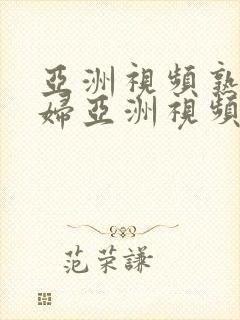 亞洲視頻熟
婦亞洲視頻
范荣謙